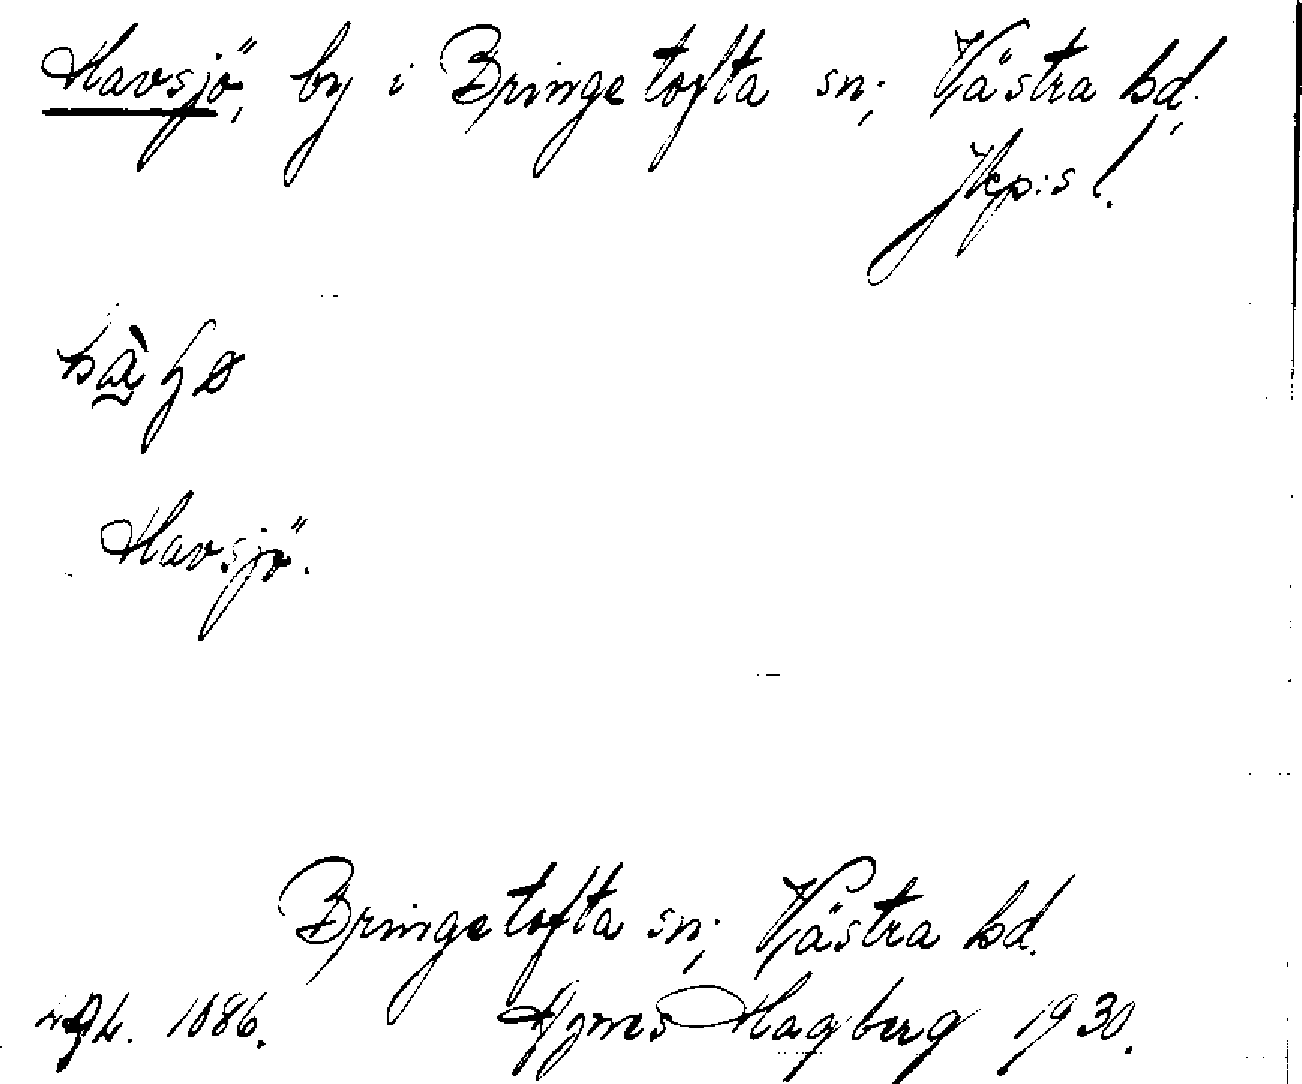 Havsjö, by i Bringetofta sn; Västra hd;
Jkp:s l.
Havsjö.
Bringetofta sn; Västra hd.
1886. Agnes Hagberg 1930.